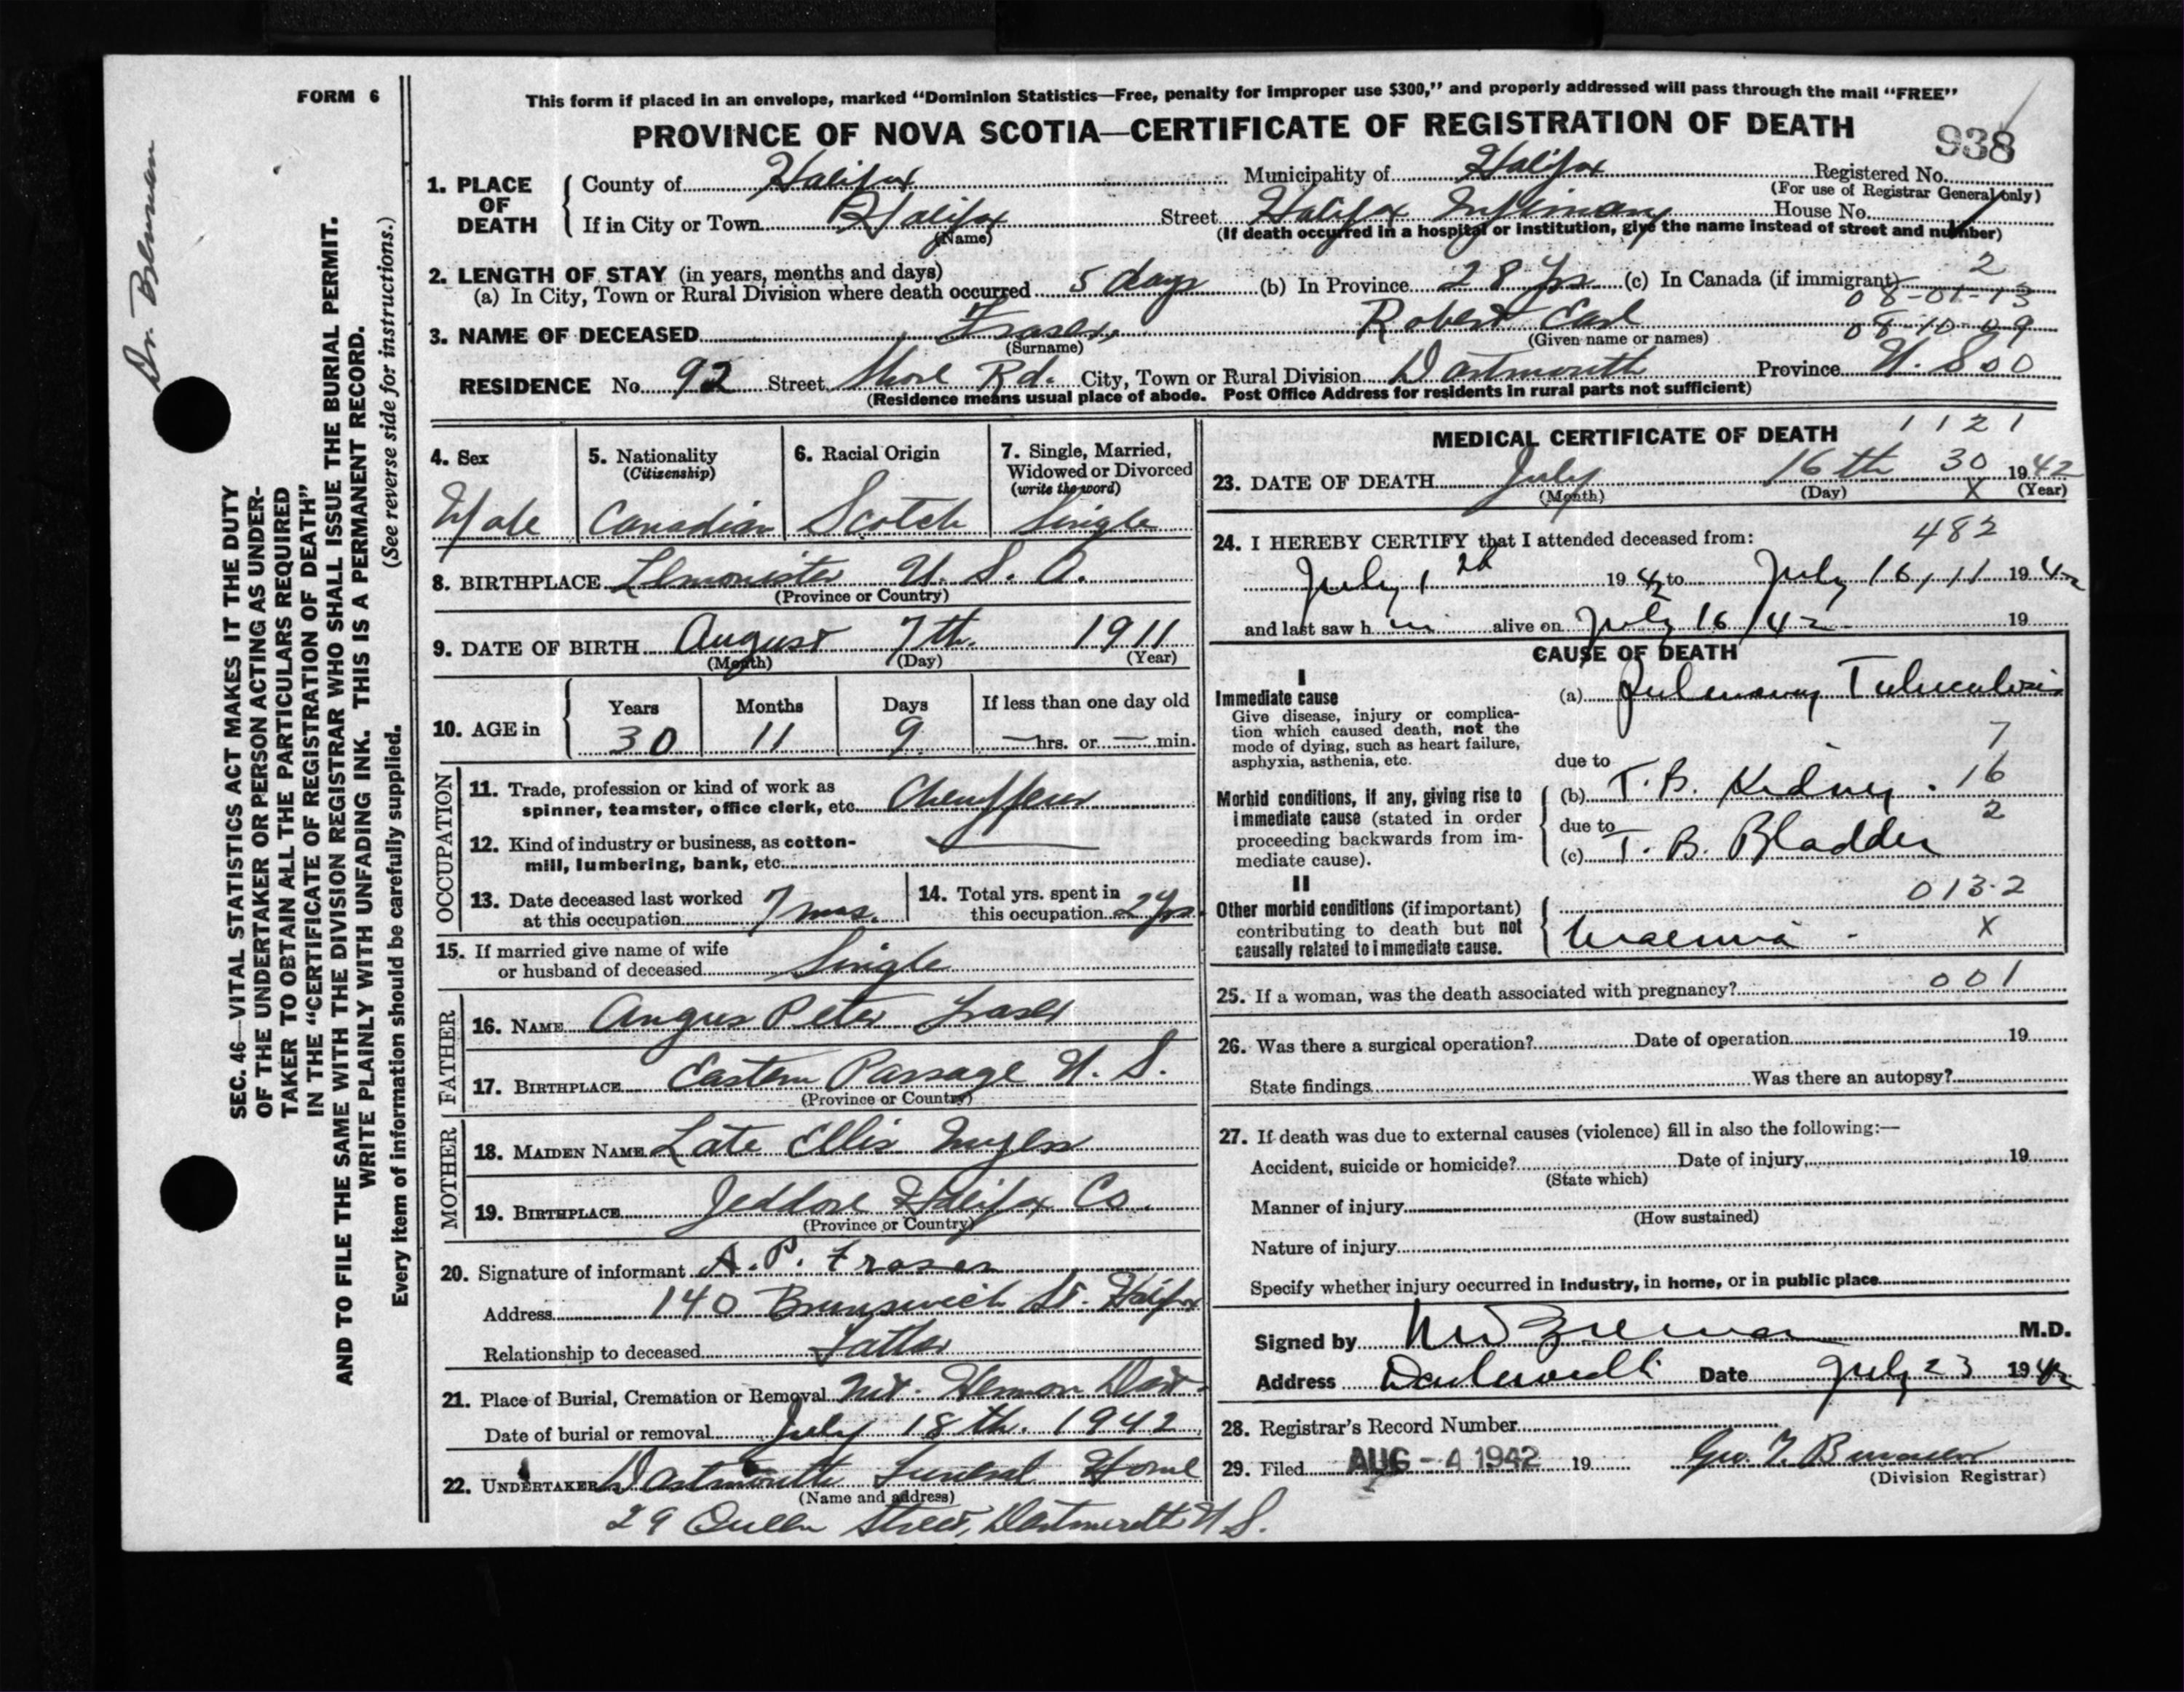 FORM 6
This form if placed in an envelope, marked "Dominion Statistics—Free, penalty for improper use $300," and properly addressed will pass through the mail "FREE"
PROVINCE OF NOVA SCOTIA—CERTIFICATE OF REGISTRATION OF DEATH
938
1. PLACE OF DEATH
County of Halifax Municipality of Halifax Registered No.
(For use of Registrar General only)
If in City or Town Halifax Street Halifax Infirmary House No.
(Name) (If death occurred in a hospital or institution, give the name instead of street and number)
2. LENGTH OF STAY (in years, months and days)
(a) In City, Town or Rural Division where death occurred 5 days (b) In Province 28 Yrs (c) In Canada (if immigrant) 2
08-01-13
3. NAME OF DECEASED Fraser Robert Earl 08-10-09
(Surname) (Given name or names)
RESIDENCE No. 92 Street Shore Rd. City, Town or Rural Division Dartmouth Province N. S 00
(Residence means usual place of abode. Post Office Address for residents in rural parts not sufficient)
4. Sex
Male
5. Nationality
(Citizenship)
Canadian
6. Racial Origin
Scotch
7. Single, Married,
Widowed or Divorced
(write the word)
Single
8. BIRTHPLACE U. S. A.
(Province or Country)
9. DATE OF BIRTH August 7th. 1911
(Month) (Day) (Year)
10. AGE in
Years Months Days If less than one day old
30 11 9 — hrs. or — min.
OCCUPATION
11. Trade, profession or kind of work as
spinner, teamster, office clerk, etc. Chauffeur
12. Kind of industry or business, as cotton-
mill, lumbering, bank, etc.
13. Date deceased last worked
at this occupation 7 mos.
14. Total yrs. spent in
this occupation 2 yrs
15. If married give name of wife
or husband of deceased Single
FATHER
16. NAME Angus Peter Fraser
17. BIRTHPLACE Eastern Passage N. S.
(Province or Country)
MOTHER
18. MAIDEN NAME Late Ellis
19. BIRTHPLACE Jeddore Halifax Co.
(Province or Country)
20. Signature of informant A. P. Fraser
Address 140 Brunswick St. Halifax
Relationship to deceased Father
21. Place of Burial, Cremation or Removal Mt. Hermon Dart
Date of burial or removal July 18th. 1942
22. UNDERTAKER Dartmouth Funeral Home
(Name and address)
29 Queen Street, Dartmouth N S.
MEDICAL CERTIFICATE OF DEATH 1121
23. DATE OF DEATH July 16th 30 1942
(Month) (Day) X (Year)
24. I HEREBY CERTIFY that I attended deceased from: 482
July 1 1942 to July 16, 11 1942
and last saw h im alive on July 16/42 19
CAUSE OF DEATH
I
Immediate cause
Give disease, injury or complica-
tion which caused death, not the
mode of dying, such as heart failure,
asphyxia, asthenia, etc.
(a) Pulmonary Tuberculosis
7
due to
Morbid conditions, if any, giving rise to
immediate cause (stated in order
proceeding backwards from im-
mediate cause).
(b) T. B. Kidney. 16
due to 2
(c) T. B. Bladder
II
Other morbid conditions (if important)
contributing to death but not
causally related to immediate cause.
013.2
Uraemia - X
25. If a woman, was the death associated with pregnancy? 001
26. Was there a surgical operation? Date of operation 19
State findings Was there an autopsy?
27. If death was due to external causes (violence) fill in also the following:—
Accident, suicide or homicide? Date of injury, 19
(State which)
Manner of injury
(How sustained)
Nature of injury
Specify whether injury occurred in Industry, in home, or in public place
Signed by M.D.
Address Dartmouth Date July 23 1942
28. Registrar's Record Number
29. Filed AUG - 4 1942 19 Geo. T.
(Division Registrar)
Dr.
SEC. 46—VITAL STATISTICS ACT MAKES IT THE DUTY
OF THE UNDERTAKER OR PERSON ACTING AS UNDER-
TAKER TO OBTAIN ALL THE PARTICULARS REQUIRED
IN THE "CERTIFICATE OF REGISTRATION OF DEATH"
AND TO FILE THE SAME WITH THE DIVISION REGISTRAR WHO SHALL ISSUE THE BURIAL PERMIT.
WRITE PLAINLY WITH UNFADING INK. THIS IS A PERMANENT RECORD.
Every item of information should be carefully supplied. (See reverse side for instructions.)